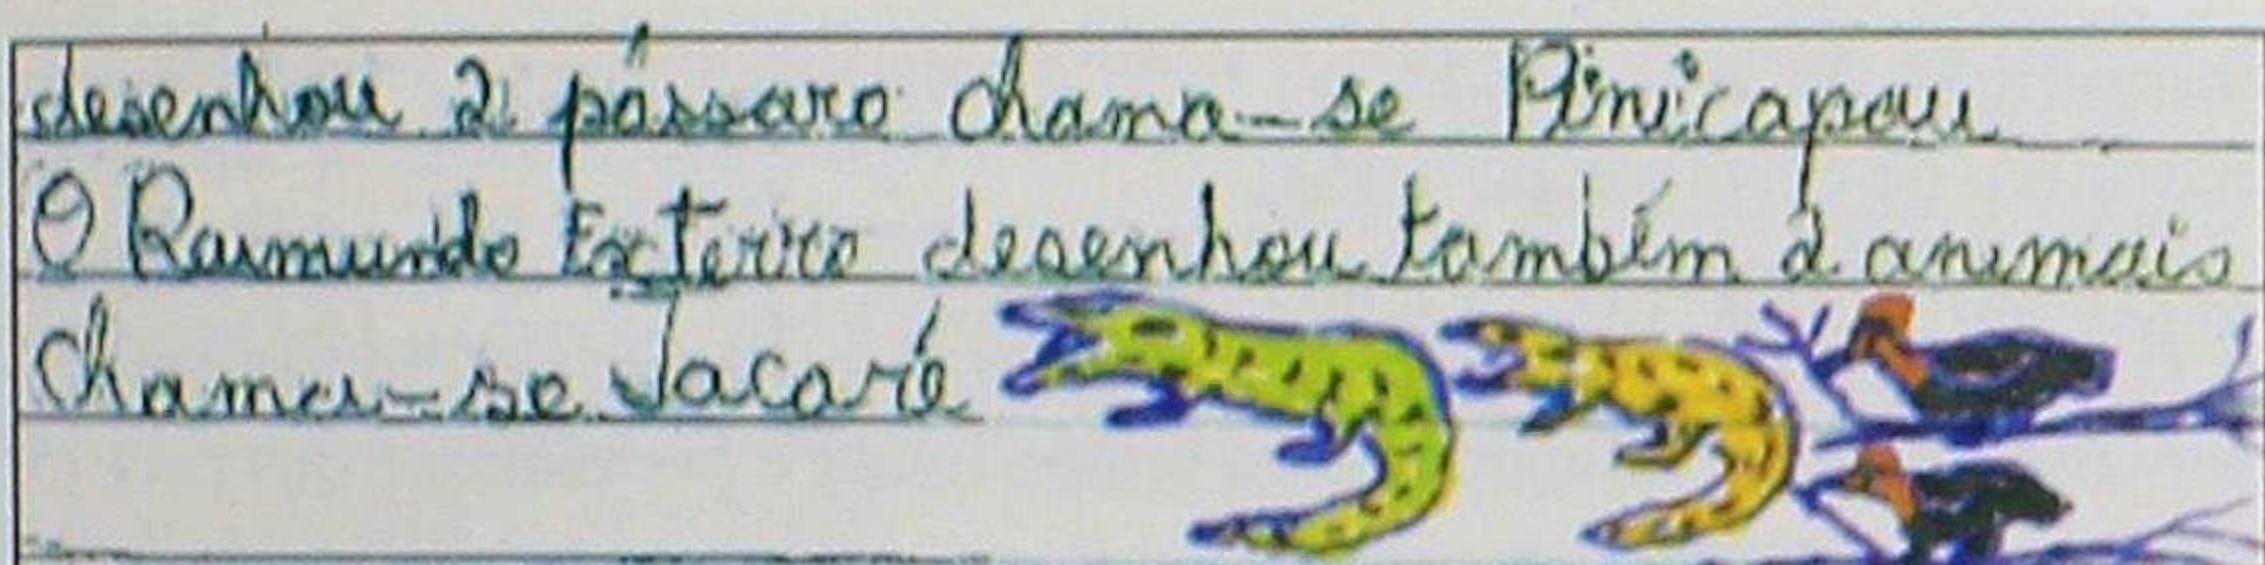 desenhou 2 pássaro chama-se Pinicapau
O Raimundo desenhou também 2 animais
chama-se Jacaré